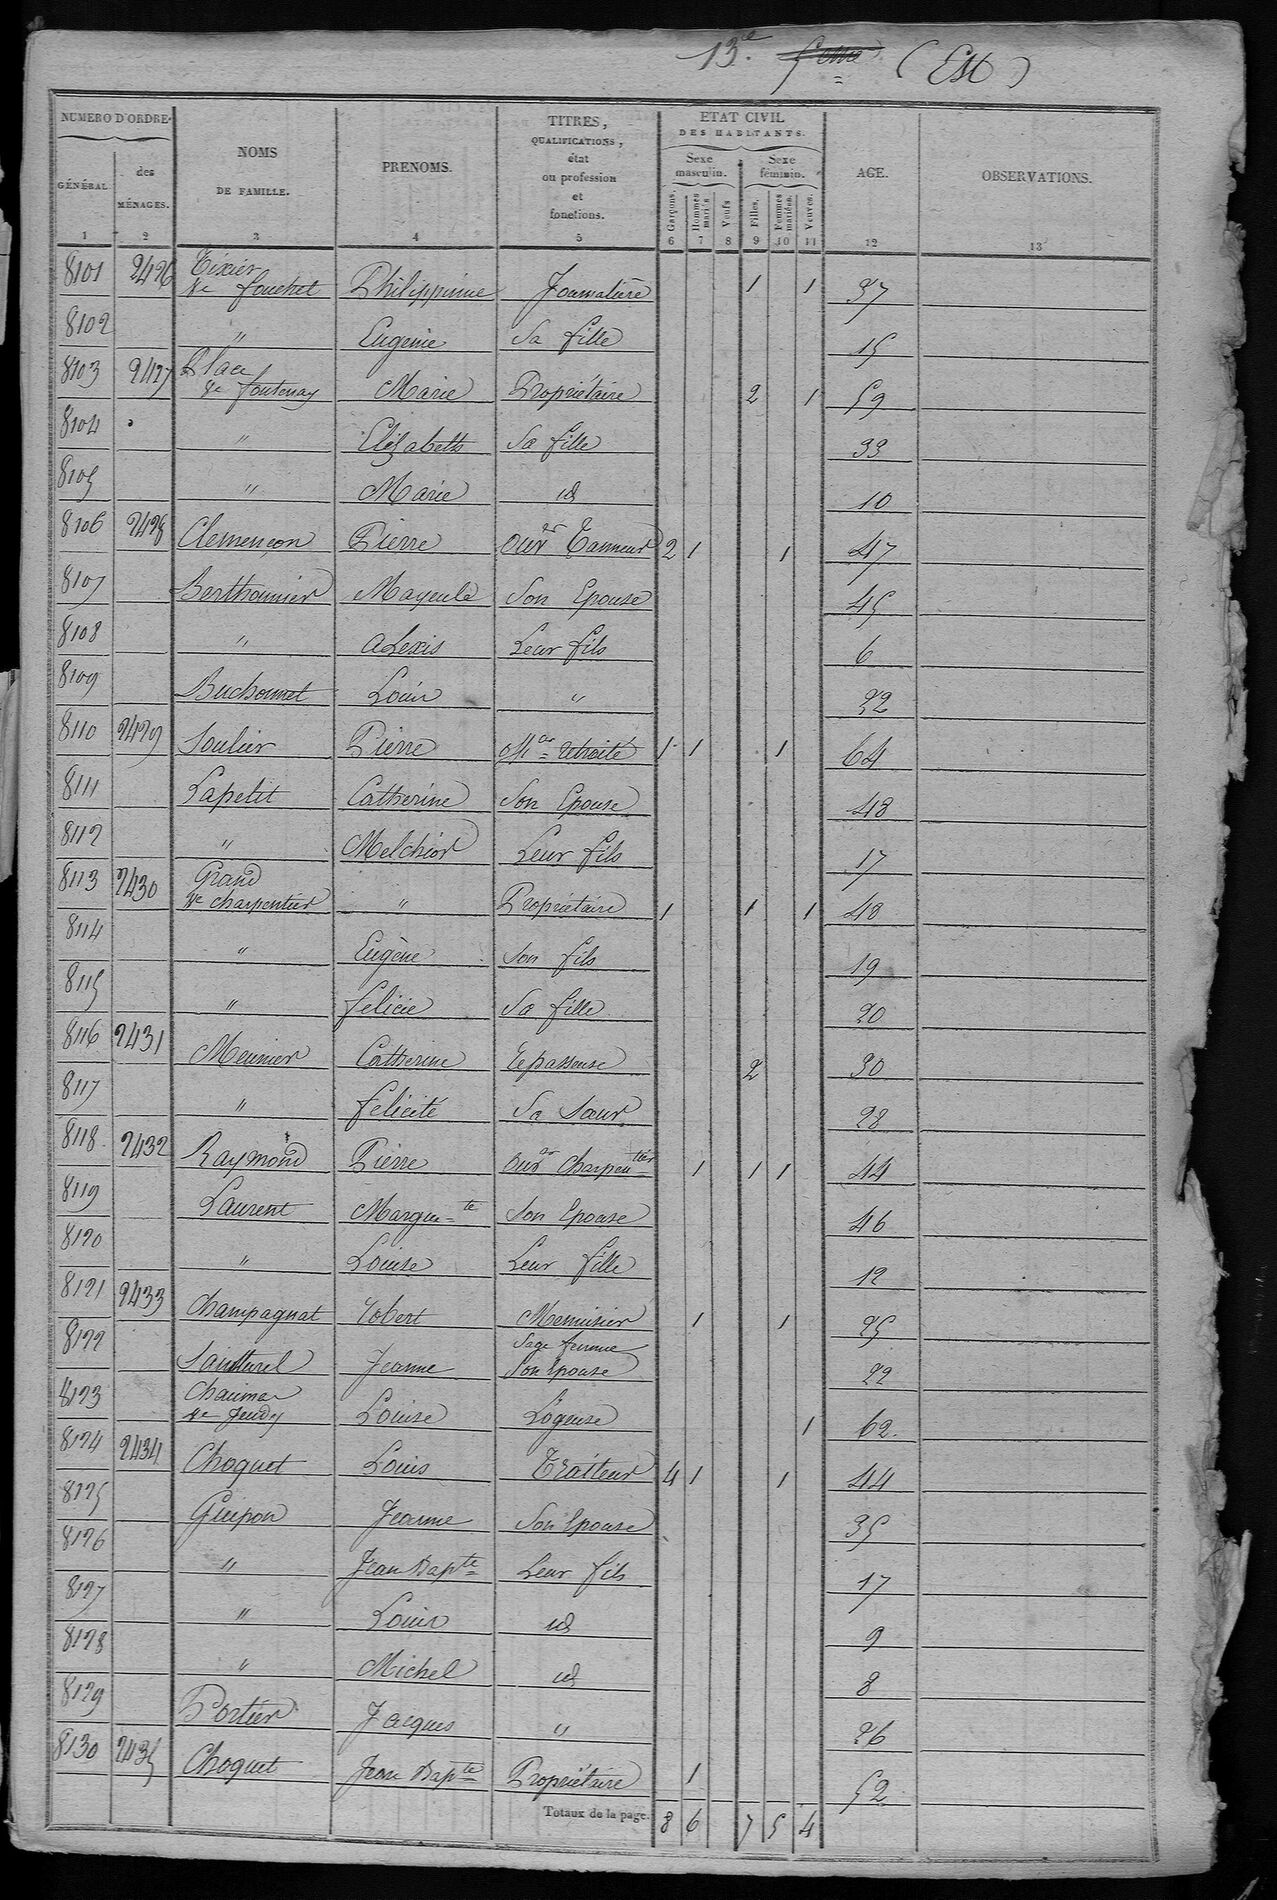 13.e (Est)
NUMERO D'ORDRE
GÉNÉRAL
des MÉNAGES.
NOMS DE FAMILLE.
PRENOMS.
TITRES, QUALIFICATIONS, état ou profession et fonctions.
ETAT CIVIL DES HABITANTS.
Sexe masculin. Sexe féminin.
Garçons. Hommes mariés Veufs Filles. Femmes mariées. Veuves.
AGE.
OBSERVATIONS.
1 2 3 4 5 6 7 8 9 10 11 12 13
8101 2426 Tixier Ve Fouchet Philippinne Journalière 1 1 37
8102 " Eugenie Sa fille 15
8103 2427 Place Ve fontenay Marie Propriétaire 2 1 59
8104 " Elizabeth Sa fille 33
8105 " Marie id 10
8106 2428 Clemencon Pierre ouvr Tanneur 2 1 1 47
8107 Berthoumier Mayeule Son Epouse 45
8108 " alexis Leur fils 6
8109 Buchonnet Louis " 22
8110 2429 Soulier Pierre offcer retraité 1 1 1 64
8111 Lapetit Catherine Son Epouse 48
8112 " Melchior Leur fils 17
8113 2430 Grand Ve charpentier " Propriétaire 1 1 1 48
8114 " Eugène Son fils 19
8115 " felicie Sa fille 20
8116 2431 Meunier Catherine repasseuse 2 30
8117 " felicité Sa Sœur 28
8118 2432 Raymond Pierre ouvr charpentier 1 1 1 44
8119 Laurent Margue-te Son Epouse 46
8120 " Louise Leur fille 12
8121 2433 Champagnat robert Menuisier 1 1 25
8122 Jeanne Sage femme Son Epouse 22
8123 Ve Jeudy Louise Logeuse 1 62
8124 2434 Choquet Louis Traiteur 4 1 1 44
8125 Guipon Jeanne Son Epouse 35
8126 " Jean Bapte Leur fils 17
8127 " Louis id 9
8128 " Michel id 8
8129 Portier Jacques " 26
8130 2435 Choquet Jean Bapte Propriétaire 1 52
Totaux de la page. 8 6 7 5 4